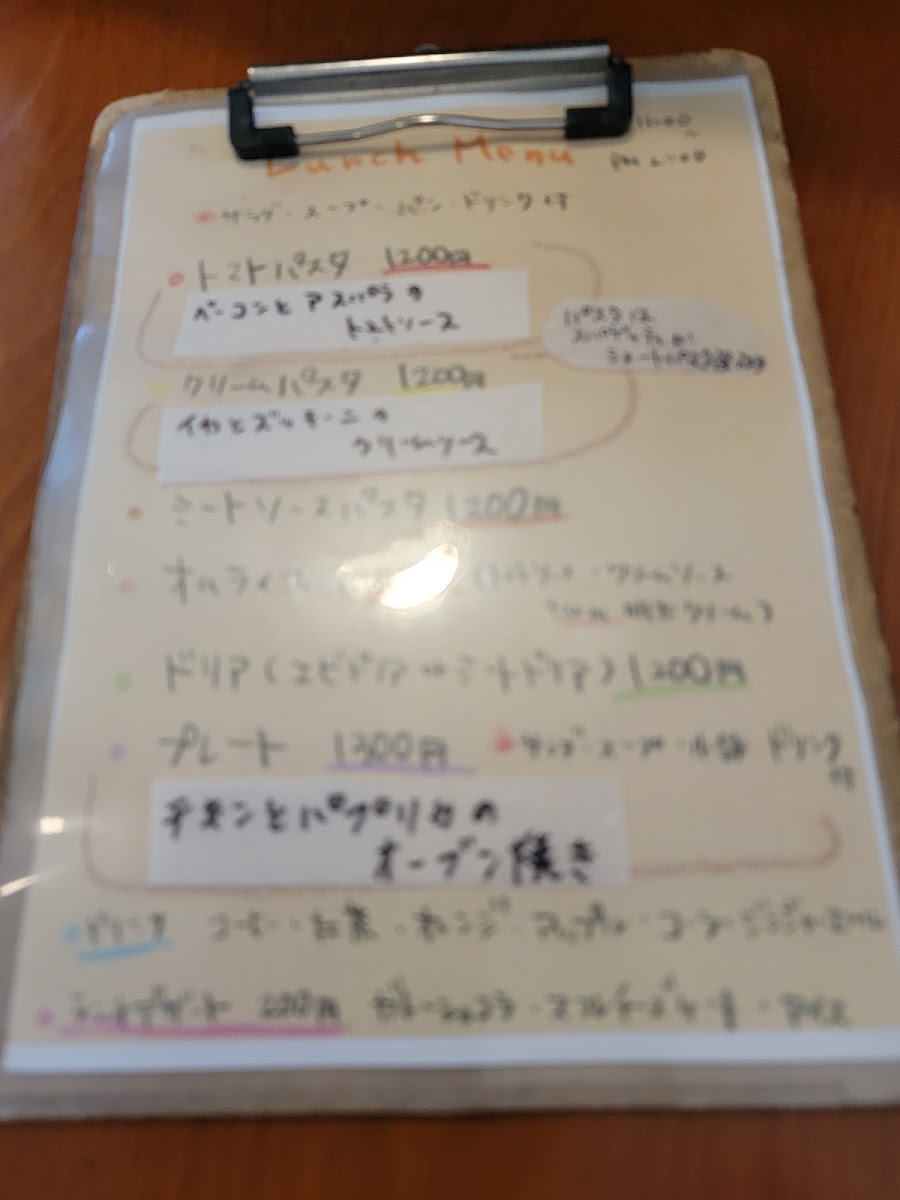 Lunch Menu
11:00
～
PM 2:00
サラダ・スープ・パン・ドリンク付
トマトパスタ 1200円
ベーコンとアスパラの
トマトソース
パスタは
クリームパスタ 1200円
イカとズッキーニの
クリームソース
ミートソースパスタ 1200円
オムライス ・クリームソース
クリーム)
ドリア(エビドリア ミートドリア) 1200円
プレート 1300円 サラダ・スープ・ ドリンク
付
チキンとパプリカの
オーブン焼き
ドリンク コーヒー・紅茶・オレンジ・アップル・コーラ・ジンジャーエール
デザート 200円 ガトーショコラ・ チーズケーキ・アイス